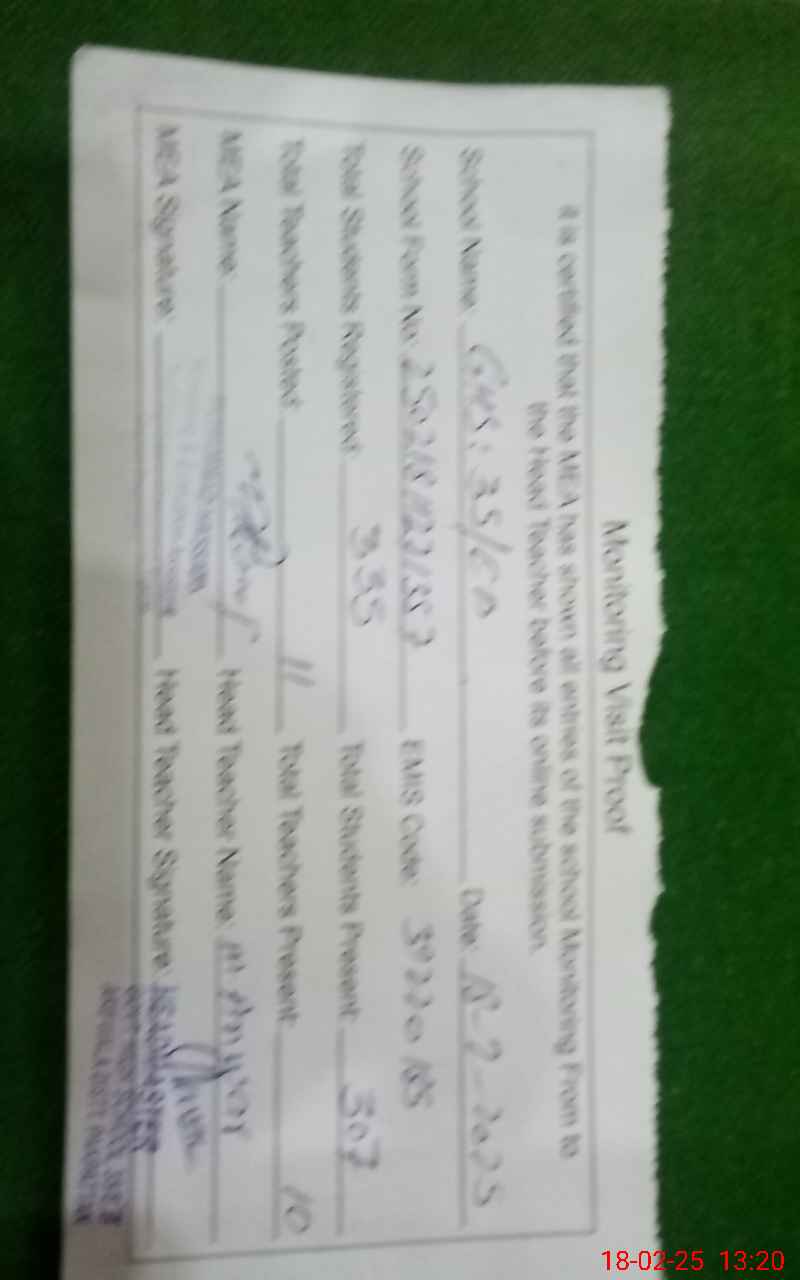 Monitoring Visit Proof
it is certified that the MEA has shown all entries of the school Monitoring From to
the Head Teacher before its online submission.
School Name: GHS: 35/ Date: 18-2-2025
School Form No: EMIS Code: 39220165
Total Students Registered: 335 Total Students Present: 307
Total Teachers Posted: 11 Total Teachers Present: 10
MEA Name: Head Teacher Name:
MEA Signature: Head Teacher Signature:
HEADMASTER
18-02-25 13:20